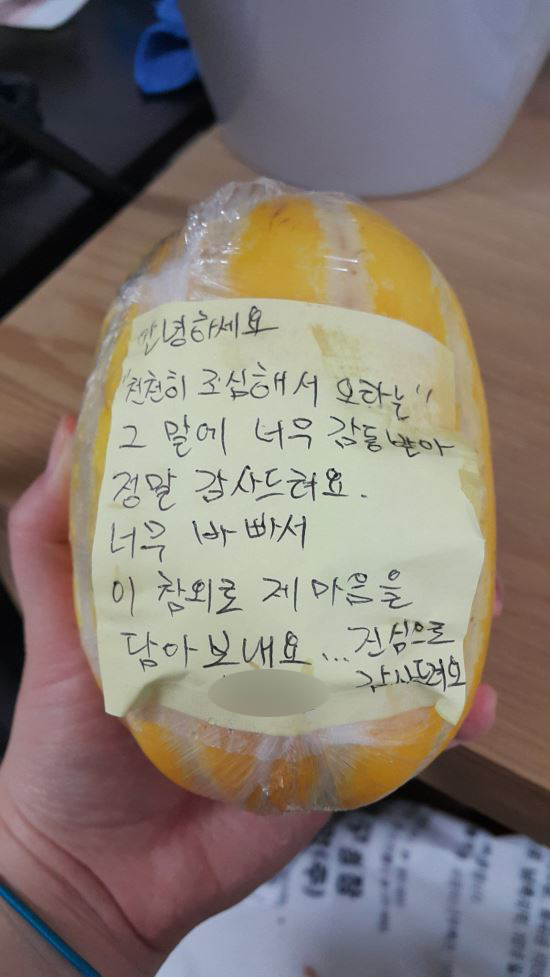 안녕하세요
"천천히 조심해서 오라는"
그 말에 너무 감동받아
정말 감사드려요.
너무 바빠서
이 참외로 제 마음을
담아보내요... 진심으로
감사드려요